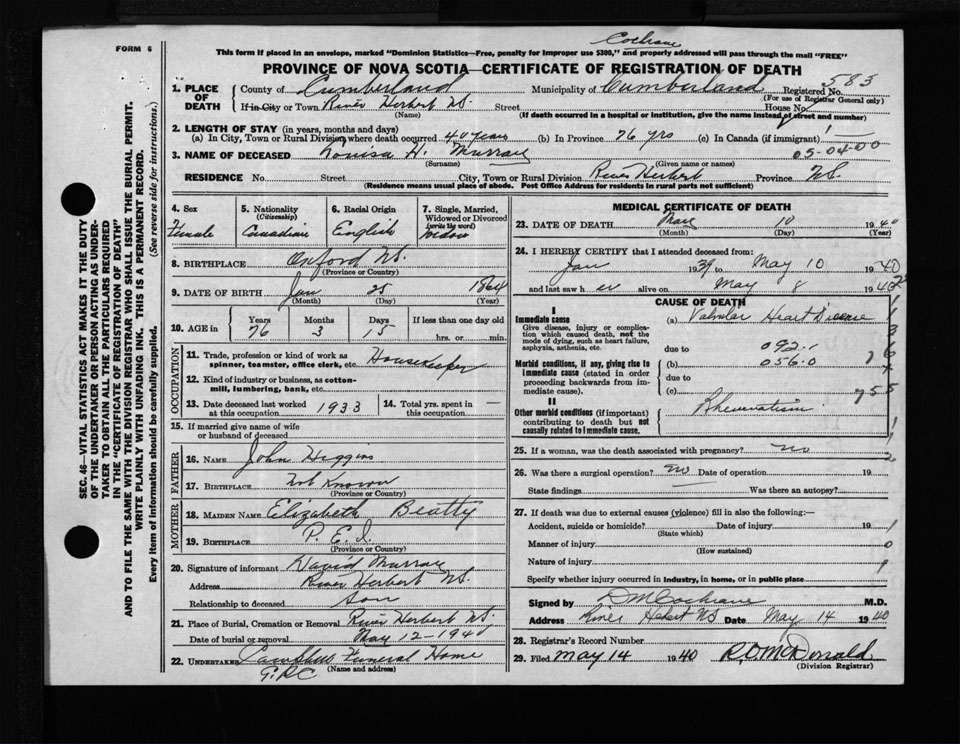 FORM 6
Cochrane
This form if placed in an envelope, marked "Dominion Statistics—Free, penalty for improper use $300," and properly addressed will pass through the mail "FREE"
PROVINCE OF NOVA SCOTIA—CERTIFICATE OF REGISTRATION OF DEATH
583
1. PLACE OF DEATH County of Cumberland Municipality of Cumberland Registered No.
(For use of Registrar General only)
If in City or Town River Hebert N.S. Street House No.
(Name) (If death occurred in a hospital or institution, give the name instead of street and number)
2. LENGTH OF STAY (in years, months and days)
(a) In City, Town or Rural Division where death occurred 40 years (b) In Province 76 yrs (c) In Canada (if immigrant)
05-04-00
3. NAME OF DECEASED Louisa H. Murray
(Surname) (Given name or names)
RESIDENCE No. Street City, Town or Rural Division River Hebert Province N.S.
(Residence means usual place of abode. Post Office Address for residents in rural parts not sufficient)
4. Sex Female
5. Nationality (Citizenship) Canadian
6. Racial Origin English
7. Single, Married, Widowed or Divorced (write the word) Widow
8. BIRTHPLACE Oxford N.S.
(Province or Country)
9. DATE OF BIRTH Jan 25 1864
(Month) (Day) (Year)
10. AGE in Years Months Days If less than one day old
76 3 15 hrs. or min.
OCCUPATION
11. Trade, profession or kind of work as spinner, teamster, office clerk, etc. Housekeeper
12. Kind of industry or business, as cotton-mill, lumbering, bank, etc.
13. Date deceased last worked at this occupation 1933 14. Total yrs. spent in this occupation —
15. If married give name of wife or husband of deceased
FATHER
16. NAME John Higgins
17. BIRTHPLACE Not Known
(Province or Country)
MOTHER
18. MAIDEN NAME Elizabeth Beatty
19. BIRTHPLACE P.E.I.
(Province or Country)
20. Signature of informant David Murray
Address River Hebert N.S.
Relationship to deceased Son
21. Place of Burial, Cremation or Removal River Hebert N.S.
Date of burial or removal May 12-1940
22. UNDERTAKER Campbell Funeral Home
(Name and address)
MEDICAL CERTIFICATE OF DEATH
23. DATE OF DEATH May 10 1940
(Month) (Day) (Year)
24. I HEREBY CERTIFY that I attended deceased from:
Jan 1939 to May 10 1940
and last saw her alive on May 8 1940
CAUSE OF DEATH
I
Immediate cause (a) Valvular Heart Disease
Give disease, injury or complication which caused death, not the mode of dying, such as heart failure, asphyxia, asthenia, etc.
due to 092.1
Morbid conditions, if any, giving rise to immediate cause (stated in order proceeding backwards from immediate cause).
(b) 056.0
due to
(c)
II
Other morbid conditions (if important) contributing to death but not causally related to immediate cause.
Rheumatism
25. If a woman, was the death associated with pregnancy? no
26. Was there a surgical operation? no Date of operation 19
State findings — Was there an autopsy?
27. If death was due to external causes (violence) fill in also the following:—
Accident, suicide or homicide? Date of injury 19
(State which)
Manner of injury
(How sustained)
Nature of injury
Specify whether injury occurred in industry, in home, or in public place
Signed by D M Cochrane M.D.
Address River Hebert NS Date May 14 1940
28. Registrar's Record Number
29. Filed May 14 1940 R.O. McDonald
(Division Registrar)
SEC. 46—VITAL STATISTICS ACT MAKES IT THE DUTY OF THE UNDERTAKER OR PERSON ACTING AS UNDERTAKER TO OBTAIN ALL THE PARTICULARS REQUIRED IN THE "CERTIFICATE OF REGISTRATION OF DEATH" AND TO FILE THE SAME WITH THE DIVISION REGISTRAR WHO SHALL ISSUE THE BURIAL PERMIT.
WRITE PLAINLY WITH UNFADING INK. THIS IS A PERMANENT RECORD.
Every item of information should be carefully supplied. (See reverse side for instructions.)